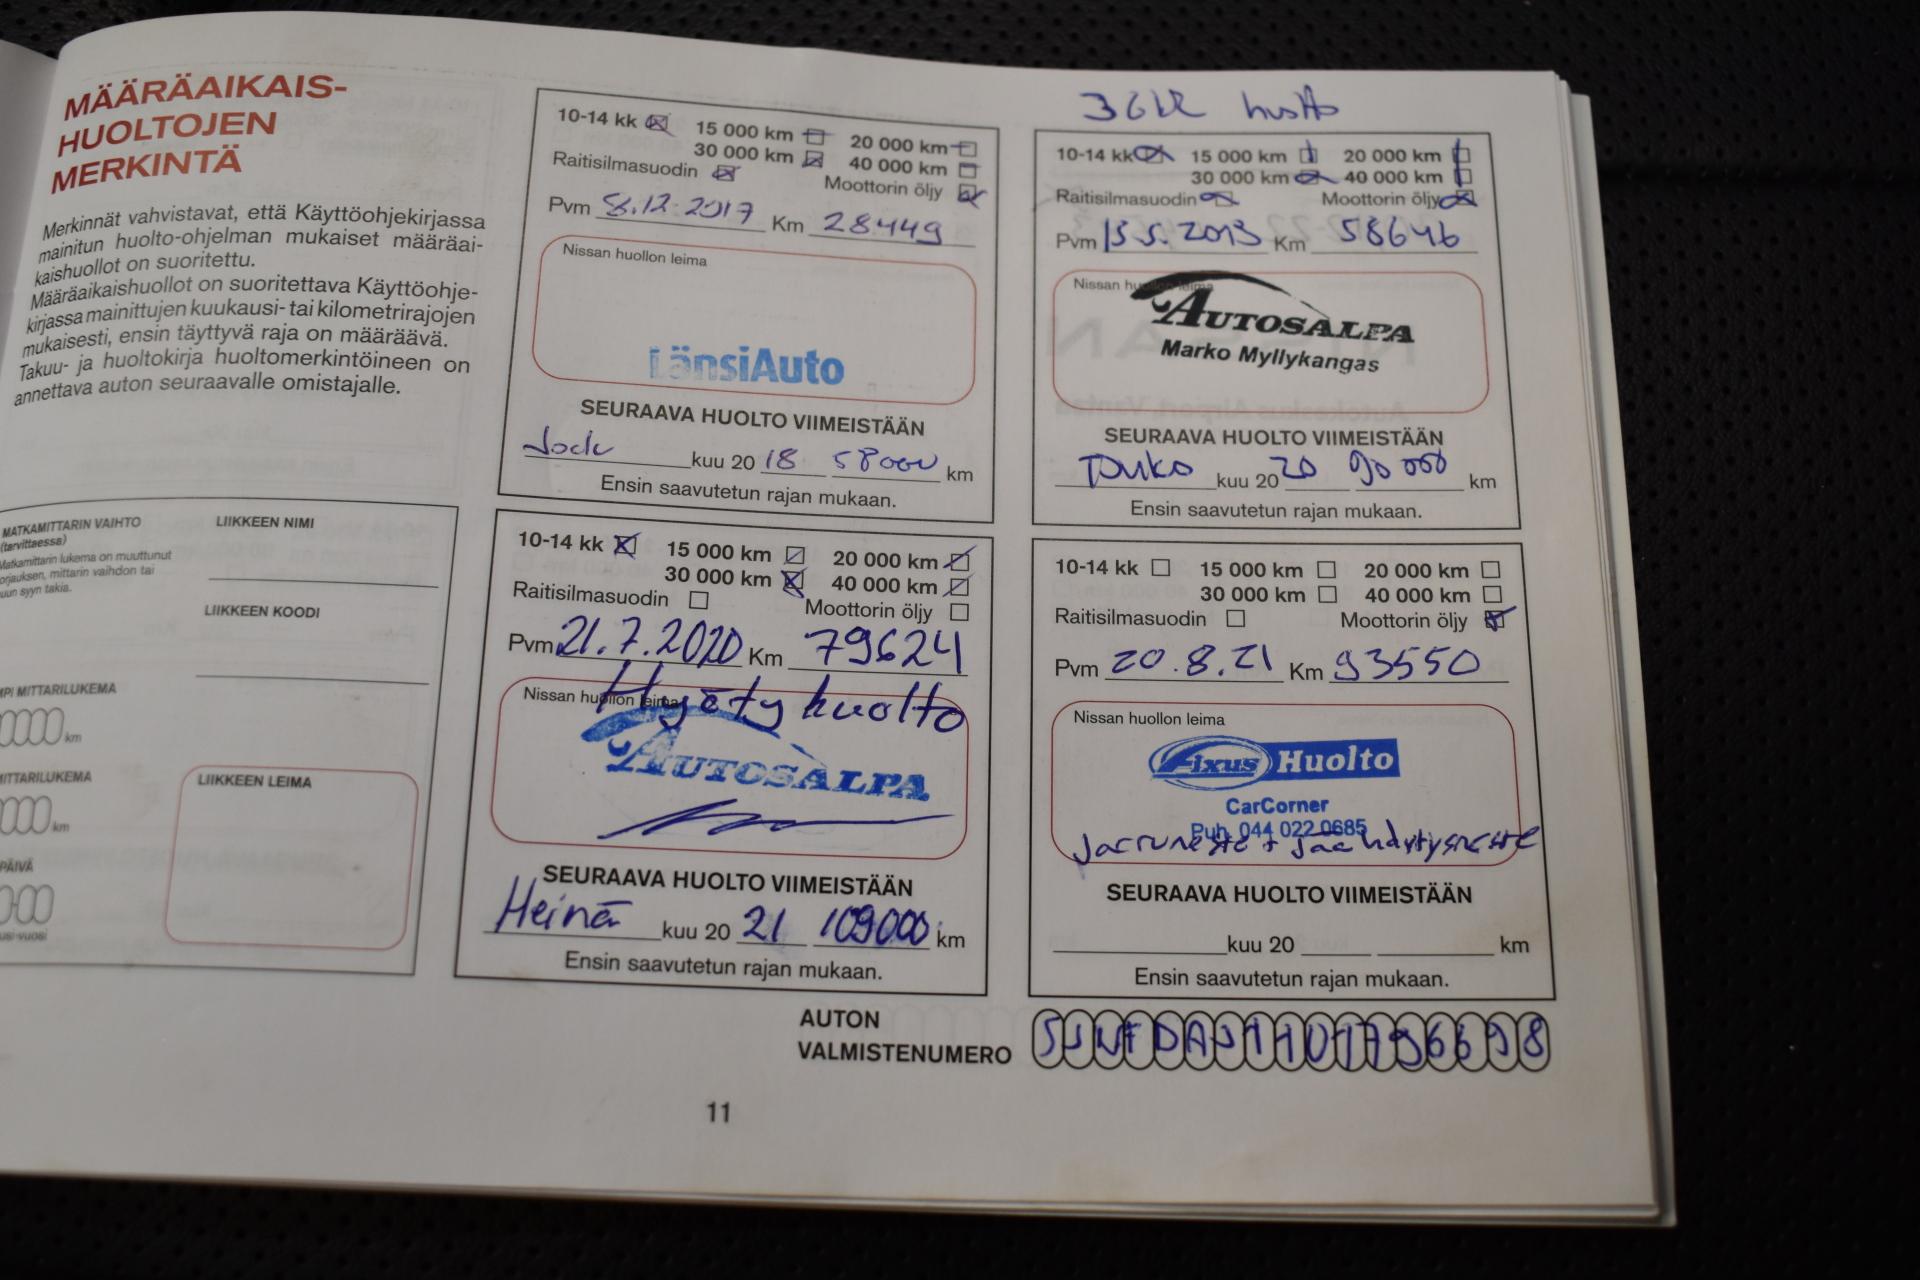 MÄÄRÄAIKAIS-
HUOLTOJEN
MERKINTÄ
Merkinnät vahvistavat, että Käyttöohjekirjassa
mainitun huolto-ohjelman mukaiset määräai-
kaishuollot on suoritettu.
Määräaikaishuollot on suoritettava Käyttöohje-
kirjassa mainittujen kuukausi- tai kilometrirajojen
mukaisesti, ensin täyttyvä raja on määräävä.
Takuu- ja huoltokirja huoltomerkintöineen on
annettava auton seuraavalle omistajalle.
MATKAMITTARIN VAIHTO
(tarvittaessa)
Matkamittarin lukema on muuttunut
vaihdon tai
syyn takia.
LIIKKEEN NIMI
LIIKKEEN KOODI
MITTARILUKEMA
km
MITTARILUKEMA
km
PÄIVÄ
LIIKKEEN LEIMA
10-14 kk 15 000 km 20 000 km
30 000 km 40 000 km
Raitisilmasuodin Moottorin öljy
Pvm 8.12.2017 Km 28449
Nissan huollon leima
LänsiAuto
SEURAAVA HUOLTO VIIMEISTÄÄN
Joulu kuu 20 18 58000 km
Ensin saavutetun rajan mukaan.
huolto
10-14 kk 15 000 km 20 000 km
30 000 km 40 000 km
Raitisilmasuodin Moottorin öljy
Pvm Km 58646
Nissan huollon leima
AUTOSALPA
Marko Myllykangas
SEURAAVA HUOLTO VIIMEISTÄÄN
Touko kuu 20 20 90 000 km
Ensin saavutetun rajan mukaan.
10-14 kk 15 000 km 20 000 km
30 000 km 40 000 km
Raitisilmasuodin Moottorin öljy
Pvm 21.7.2020 Km 79624
Nissan huollon leima
Hyöty huolto
AUTOSALPA
SEURAAVA HUOLTO VIIMEISTÄÄN
Heinä kuu 20 21 109000 km
Ensin saavutetun rajan mukaan.
10-14 kk 15 000 km 20 000 km
30 000 km 40 000 km
Raitisilmasuodin Moottorin öljy
Pvm 20.8.21 Km 93550
Nissan huollon leima
Fixus Huolto
CarCorner
Puh. 044 022 0685
Jarruneste + Jäähdytysneste
SEURAAVA HUOLTO VIIMEISTÄÄN
kuu 20 km
Ensin saavutetun rajan mukaan.
AUTON
VALMISTENUMERO SJNFDAJ11U1796698
11